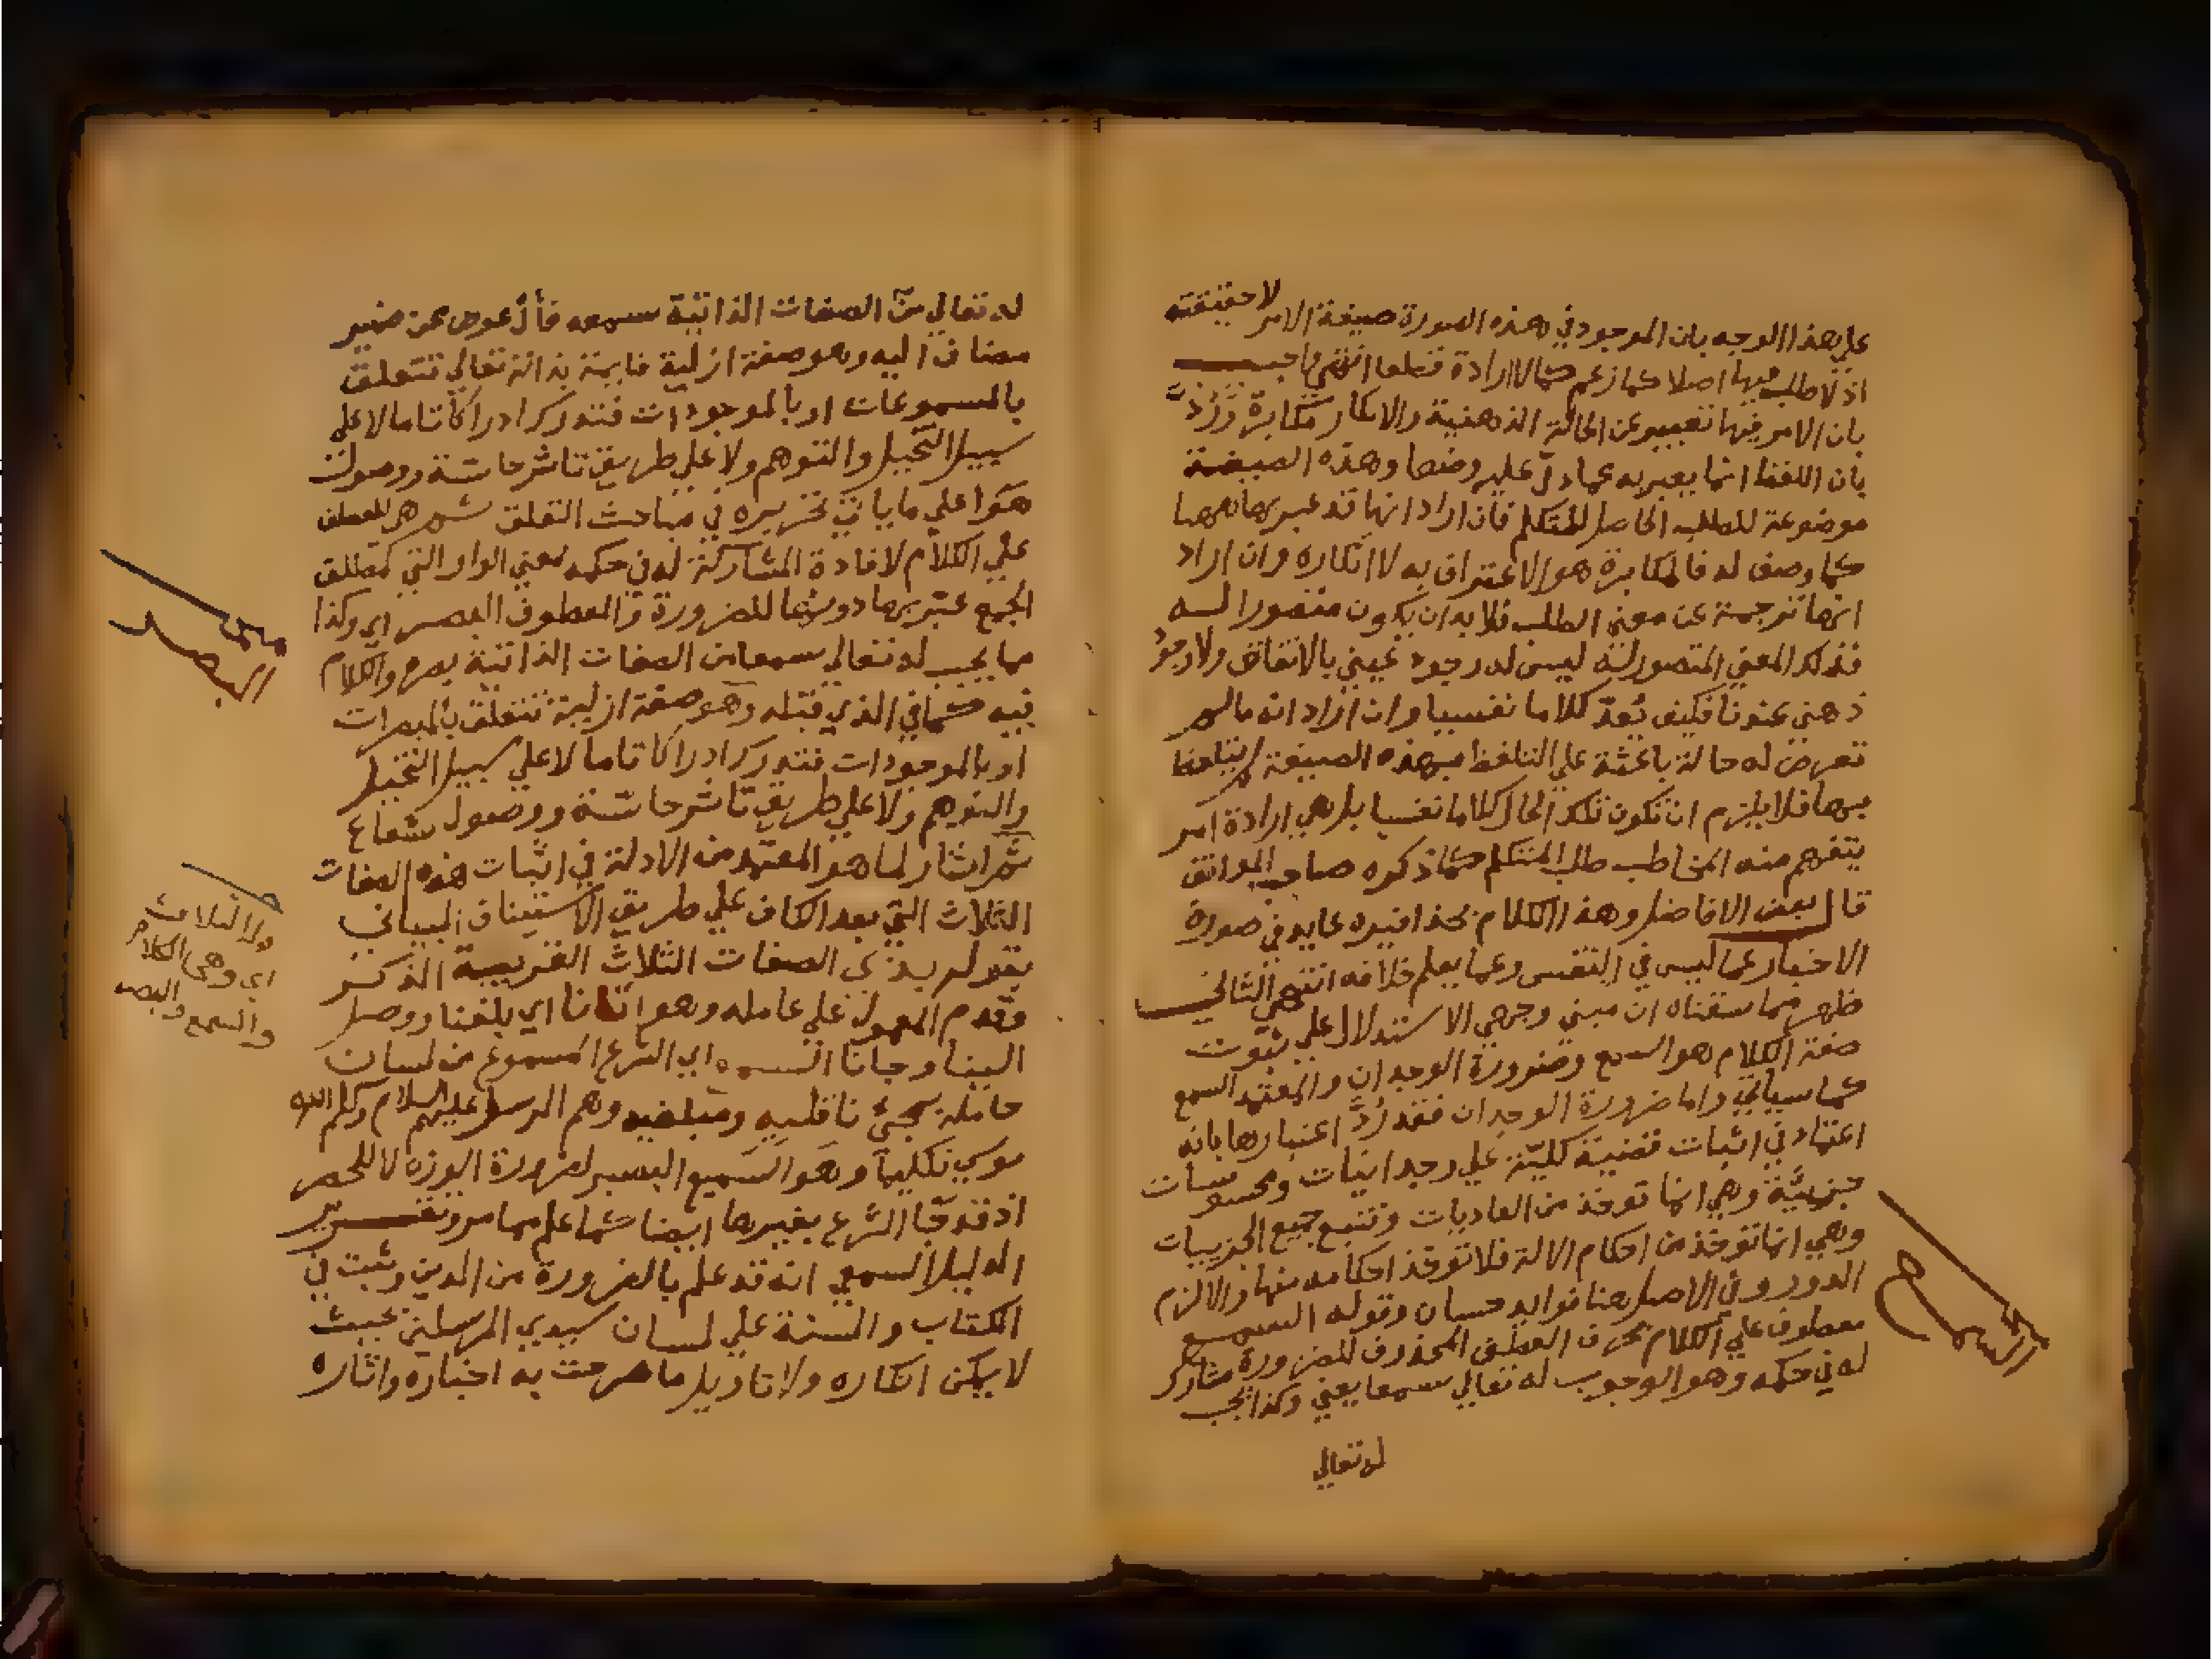 على هذا الوجه بان الموجود في هذه الصورة صيغة الامر لا حقيقته
اذ لا طلب فيها اصلا كما زعم كما لا ارادة قطعا انتهى واجيب
بان الامر فيها تعبير عن الحالة الذهنية والانكار مكابرة ورد
بان اللفظ انما يعبر به عما دل عليه وضعا وهذه الصيغة
موضوعة للطلب الحاصل للمتكلم فان اراد انها قد عبر بها ههنا
كما وصف له فالمكابرة هو الاعتراف به لا انكاره وان اراد
انها ترجمة عن معنى الطلب فلا بد ان يكون متصورا له
فذلك المعنى المتصور له ليس له وجود عيني بالاتفاق ولا وجود
ذهني عندنا فكيف يعد كلاما نفسيا وان اراد انه بالامر
تعرض له حالة باعثة على التلفظ بهذه الصيغة او يتلفظ
بها فلا يلزم ان تكون تلك الحال كلاما نفسيا بل هي ارادة امر
يتفهم منه المخاطب طلب المتكلم كما ذكره صاحب المواقف
قال بعض الافاضل وهذا الكلام بحذافيره عايد في صورة
الاخبار عما ليس في النفس وعما يعلم خلافه انتهى الثاني
ظهر مما سقناه ان مبنى وجهي الاستدلال على ثبوت
صفة الكلام هو السمع وضرورة الوجدان والمعتمد السمع
كما سياتي واما ضرورة الوجدان فقد رد اعتبارها بانه
اعتماد في اثبات قضية كلية على وجدانيات ومحسوسات
جزيية وهي انما توخذ من العاديات وتتبع جميع الجزييات
وهي انما توخذ من احكام الالة فلا توخذ احكامه منها والا لزم
الدور وفي الاصل هنا فوايد حسان وقوله السمع
معطوف على الكلام بحرف العطف المحذوف للضرورة مشارك
له في حكمه وهو الوجوب له تعالى سمعا يعني وكذا يجب
له تعالى
السمع
له تعالى من الصفات الذاتية سمعه فأل عوض عن ضمير
مضاف اليه وهو صفة ازلية قايمة بذاته تعالى تتعلق
بالمسموعات او بالموجودات فتدرك ادراكا تاما لا على
سبيل التخيل والتوهم ولا على طريق تاثر حاسة ووصول
هوا على ما ياتي تحريره في مباحث التعلق ثم هي للعطف
على الكلام لافادة المشاركة له في حكمه بمعنى الواو التي لمطلق
الجمع عبر بها دونها للضرورة والمعطوف البصر اي وكذا
مما يجب له تعالى سمعا من الصفات الذاتية بصره والكلام
فيه كما في الذي قبله وهو صفة ازلية تتعلق بالمبصرات
او بالموجودات فتدرك ادراكا تاما لا على سبيل التخيل
والتوهم ولا على طريق تاثر حاسة ووصول شعاع
ثم اشار لما هو المعتمد من الادلة في اثبات هذه الصفات
الثلاث التي بعد الكاف على طريق الاستيناف البياني
بقوله بذي الصفات الثلاث القريبة الذكر
وقدم المعمول على عامله وهو اتانا اي بلغنا ووصل
الينا وجانا السمع اي الشرع المسموع من لسان
حامله بمجي ناقليه ومبلغيه وهم الرسل عليهم السلام وكلم الله
موسى تكليما وهو السميع البصير لضرورة الوزن لا للحصر
اذ قد جا الشرع بغيرها ايضا كما علم مما مر وتقرير
الدليل السمعي انه قد علم بالضرورة من الدين وثبت في
الكتاب والسنة على لسان سيدي المرسلين بحيث
لا يمكن انكاره ولا تاويله ما صرحت به اخباره واثاره
البصر
اي وهي الكلام
والسمع والبصر